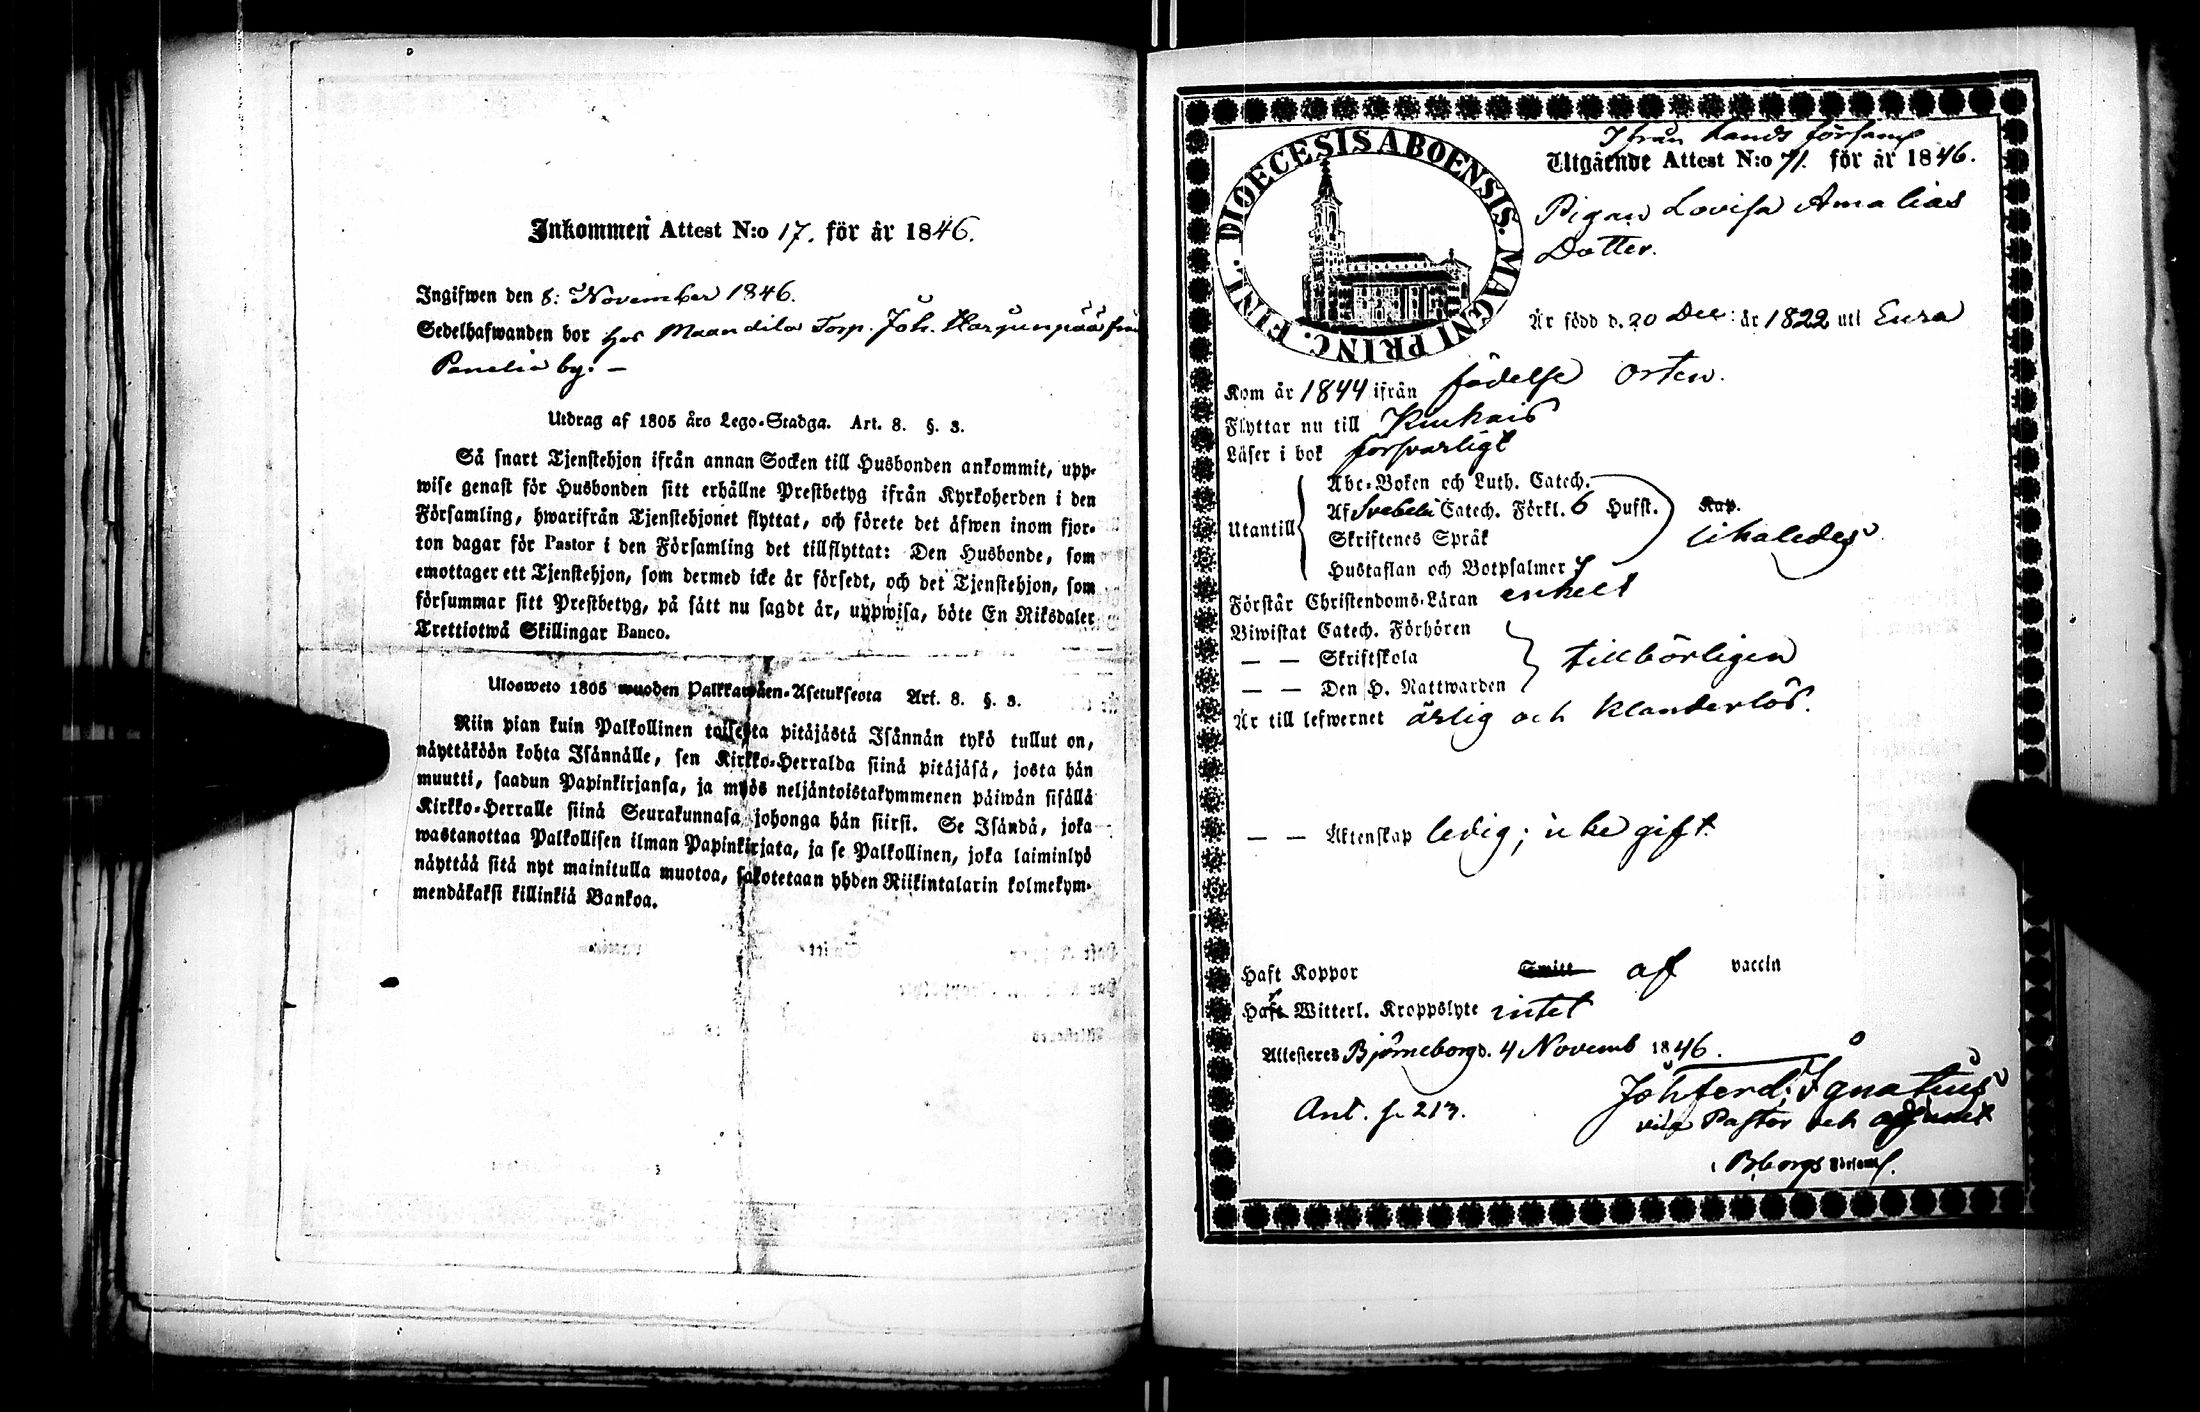 Inkommen Attest N:o 17. för år 1846.
Ingifwen den 8: November 1846.
Sedelhafwanden bor hos Maandila Torp. Joh. Harjunpää från
Panelia by. –
Utdrag af 1805 års Lego-Stadga. Art. 8. §. 3.
Så snart Tjenstehjon ifrån annan Socken till Husbonden ankommit, upp-
wise genast för Husbonden sitt erhållne Prestbetyg ifrån Kyrkoherden i den
Församling, hwarifrån Tjenstehjonet flyttat, och förete det äfwen inom fjor-
ton dagar för Pastor i den Församling det tillflyttat: Den Husbonde, som
emottager ett Tjenstehjon, som dermed icke är försedt, och det Tjenstehjon, som
försummar sitt Prestbetyg, på sätt nu sagdt är, uppwisa, böte En Riksdaler
Trettiotwå Skillingar Banco.
Ulosweto 1805 wuoden Palkkawäen-Asetuksesta Art. 8. §. 3.
Niin pian kuin Palkollinen toisesta pitäjästä Isännän tykö tullut on,
näyttäköön kohta Isännälle, sen Kirkko-Herralda siinä pitäjäsä, josta hän
muutti, saadun Papinkirjansa, ja myös neljäntoistakymmenen päiwän sisällä
Kirkko-Herralle siinä Seurakunnasa johonga hän siirsi. Se Isändä, joka
wastanottaa Palkollisen ilman Papinkirjata, ja se Palkollinen, joka laiminlyö
näyttää sitä nyt mainitulla muotoa, sakotetaan yhden Riikintalarin kolmekym-
mendäkaksi killinkiä Bankoa.
DIOECESIS ABOENSIS. MAGNI PRINC. FINL.
Ifrån Lands församl
Utgående Attest N:o 71. för år 1846.
Pigan Lovisa Amalias
Dotter.
Är född d. 20 Dec: år 1822 uti Eura
Kom år 1844 ifrån födelse orten.
Flyttar nu till Kiukais
Läser i bok försvarligt
Abc-Boken och Luth. Catech.
Utantill Af Svebelii Catech. Förkl. 6 Hufst. Kap.
Skriftenes Språk likaledes
Hustaflan och Botpsalmer 7
Förstår Christendoms-Läran enkelt
Biwistat Catech. Förhören
— — Skriftskola tillbörligen
— — Den H. Nattwarden
Är till lefwernet ärlig och klanderlös.
— — Äktenskap ledig; icke gift
Haft Koppor Smitt af vaccin
Haft Witterl. Kroppslyte intet
Attesteres Björneborg d. 4 Novemb 1846.
Ant. s. 213. Joh Ferd: Ignatius
vice Pastor och adjunct
i Bborgs Församl.